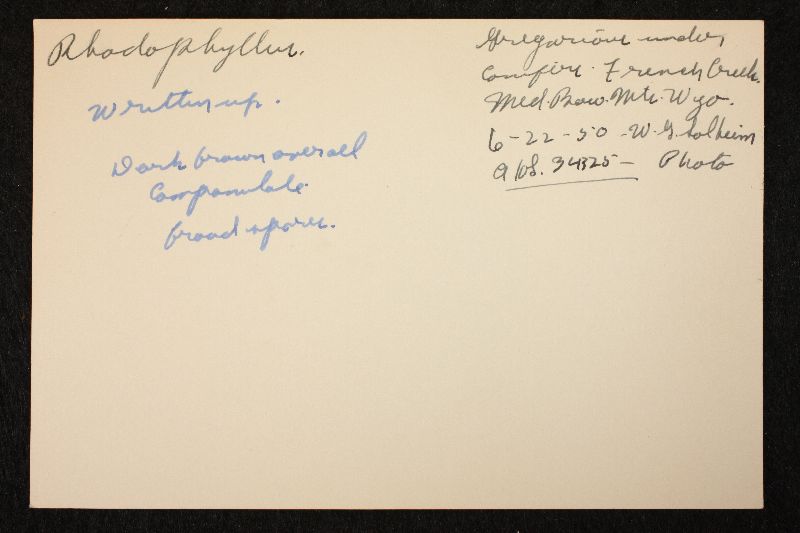 Rhodophyllus.
Written up.
Dark brown overall
Campanulate
broad spores.
Gregarious under
Conifers. French Creek.
Med. Bow. Mts. Wyo.
6-22-50 - W.G. Solheim
AHS. 34325 - Photo